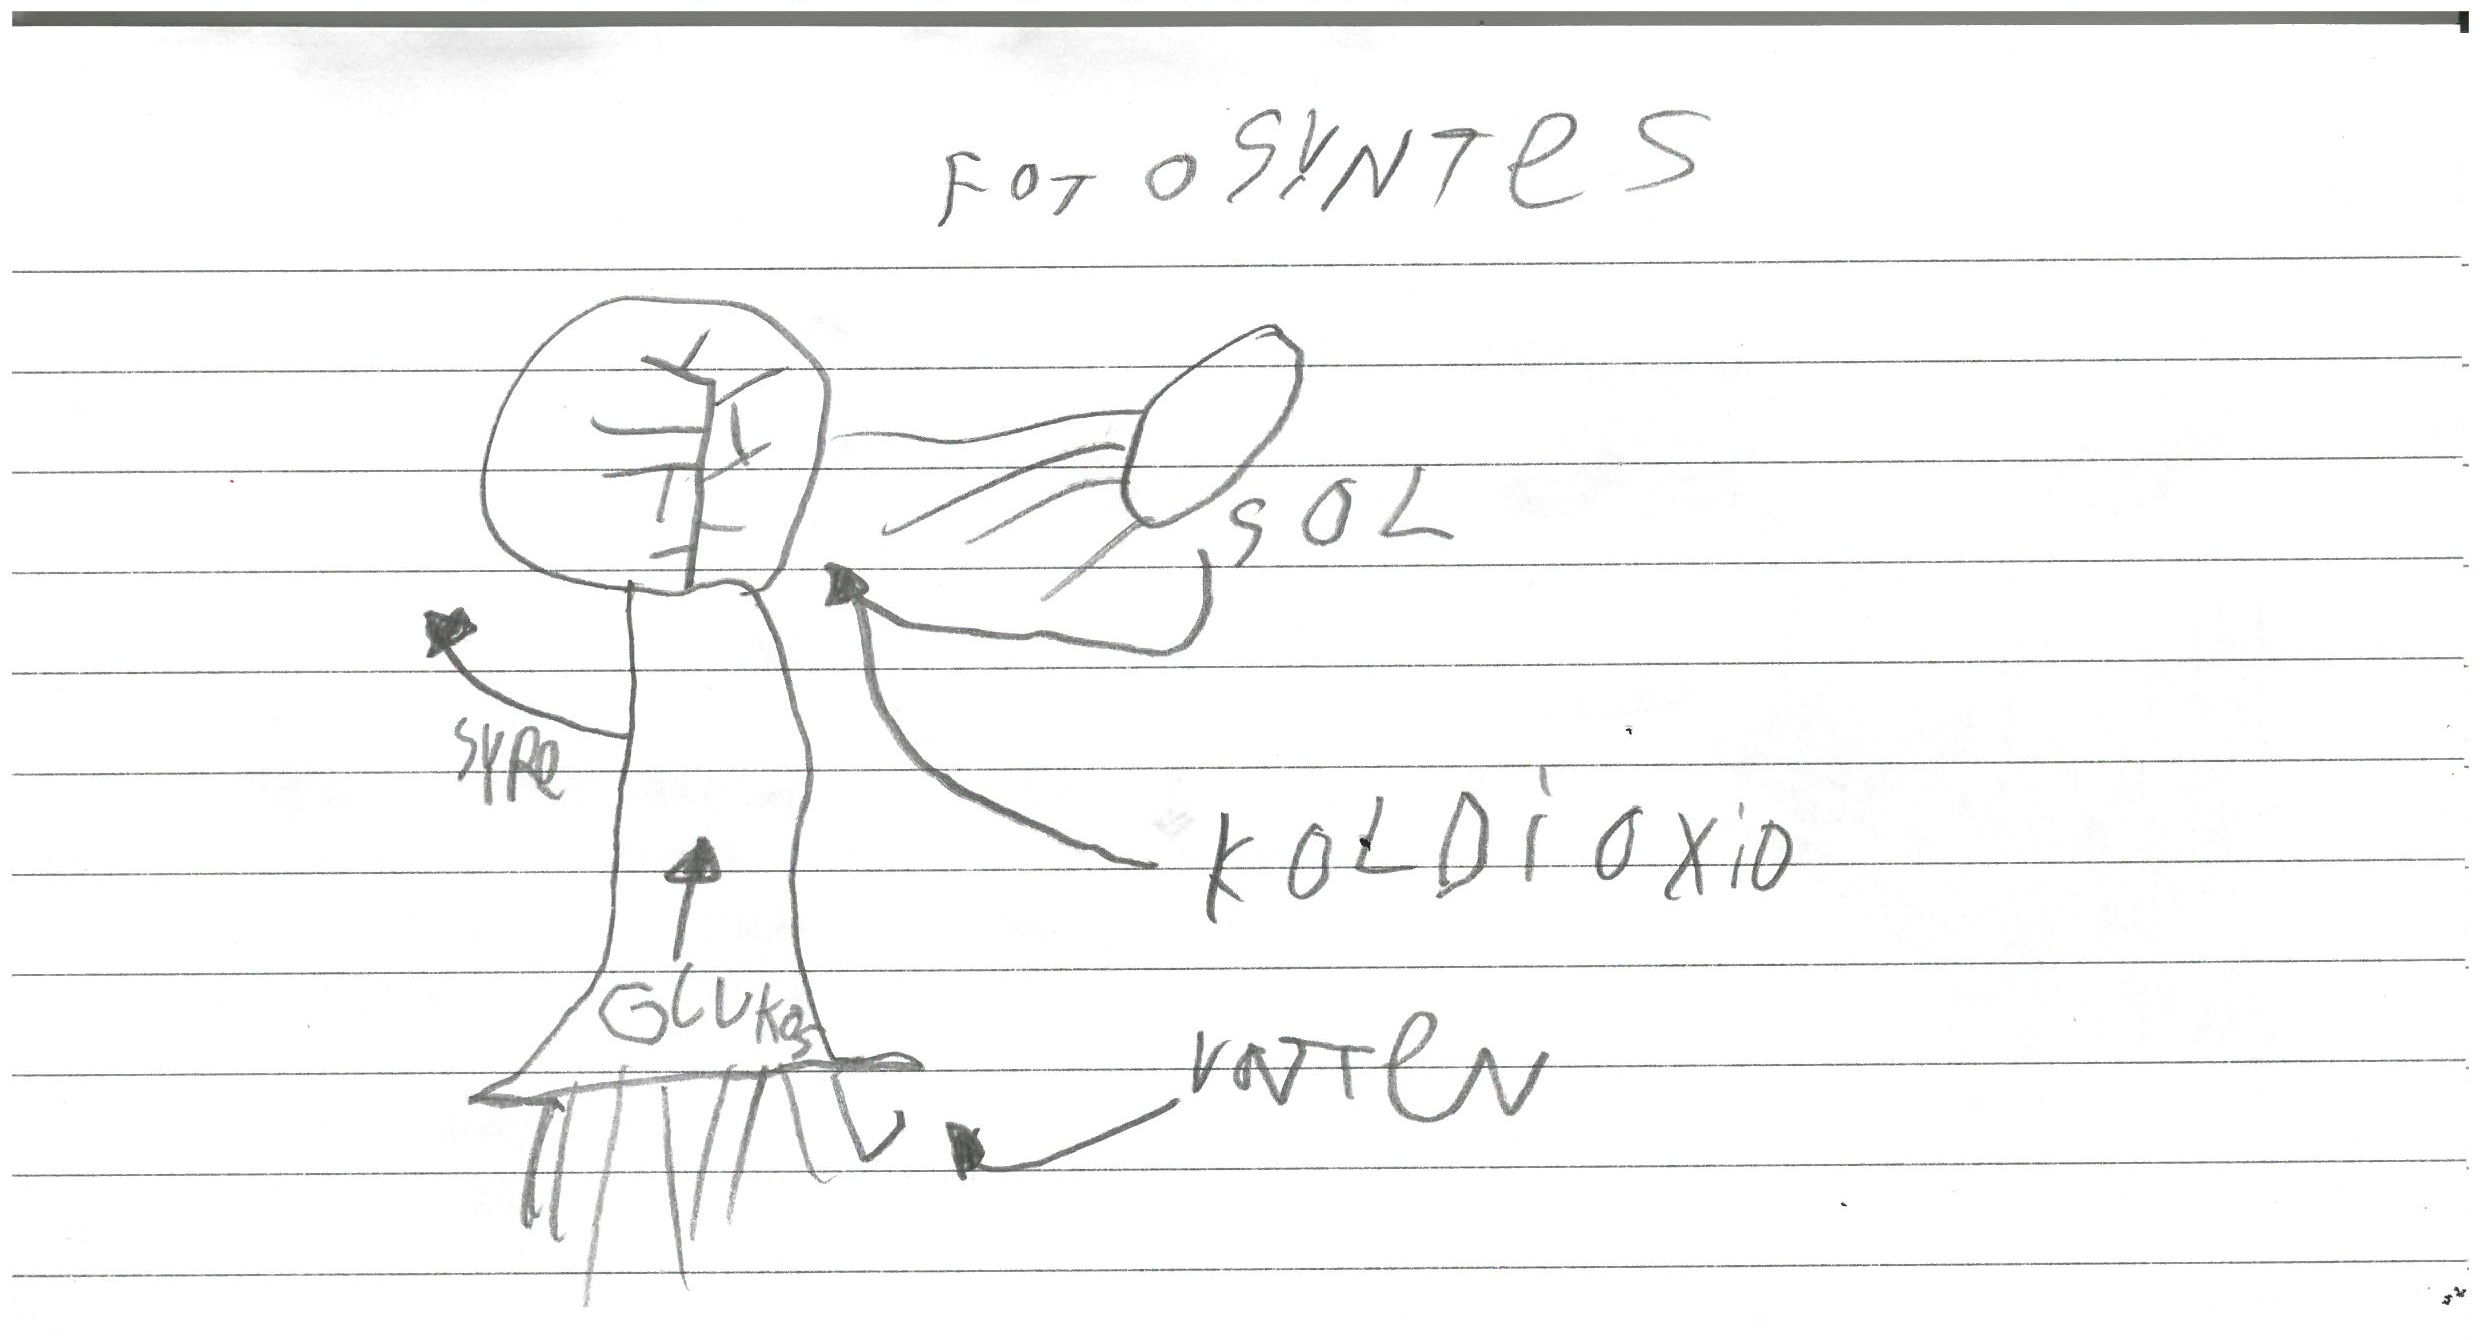 FOTOSYNTES
SOL
SYRE
KOLDIOXID
GLUKOS
VATTEN